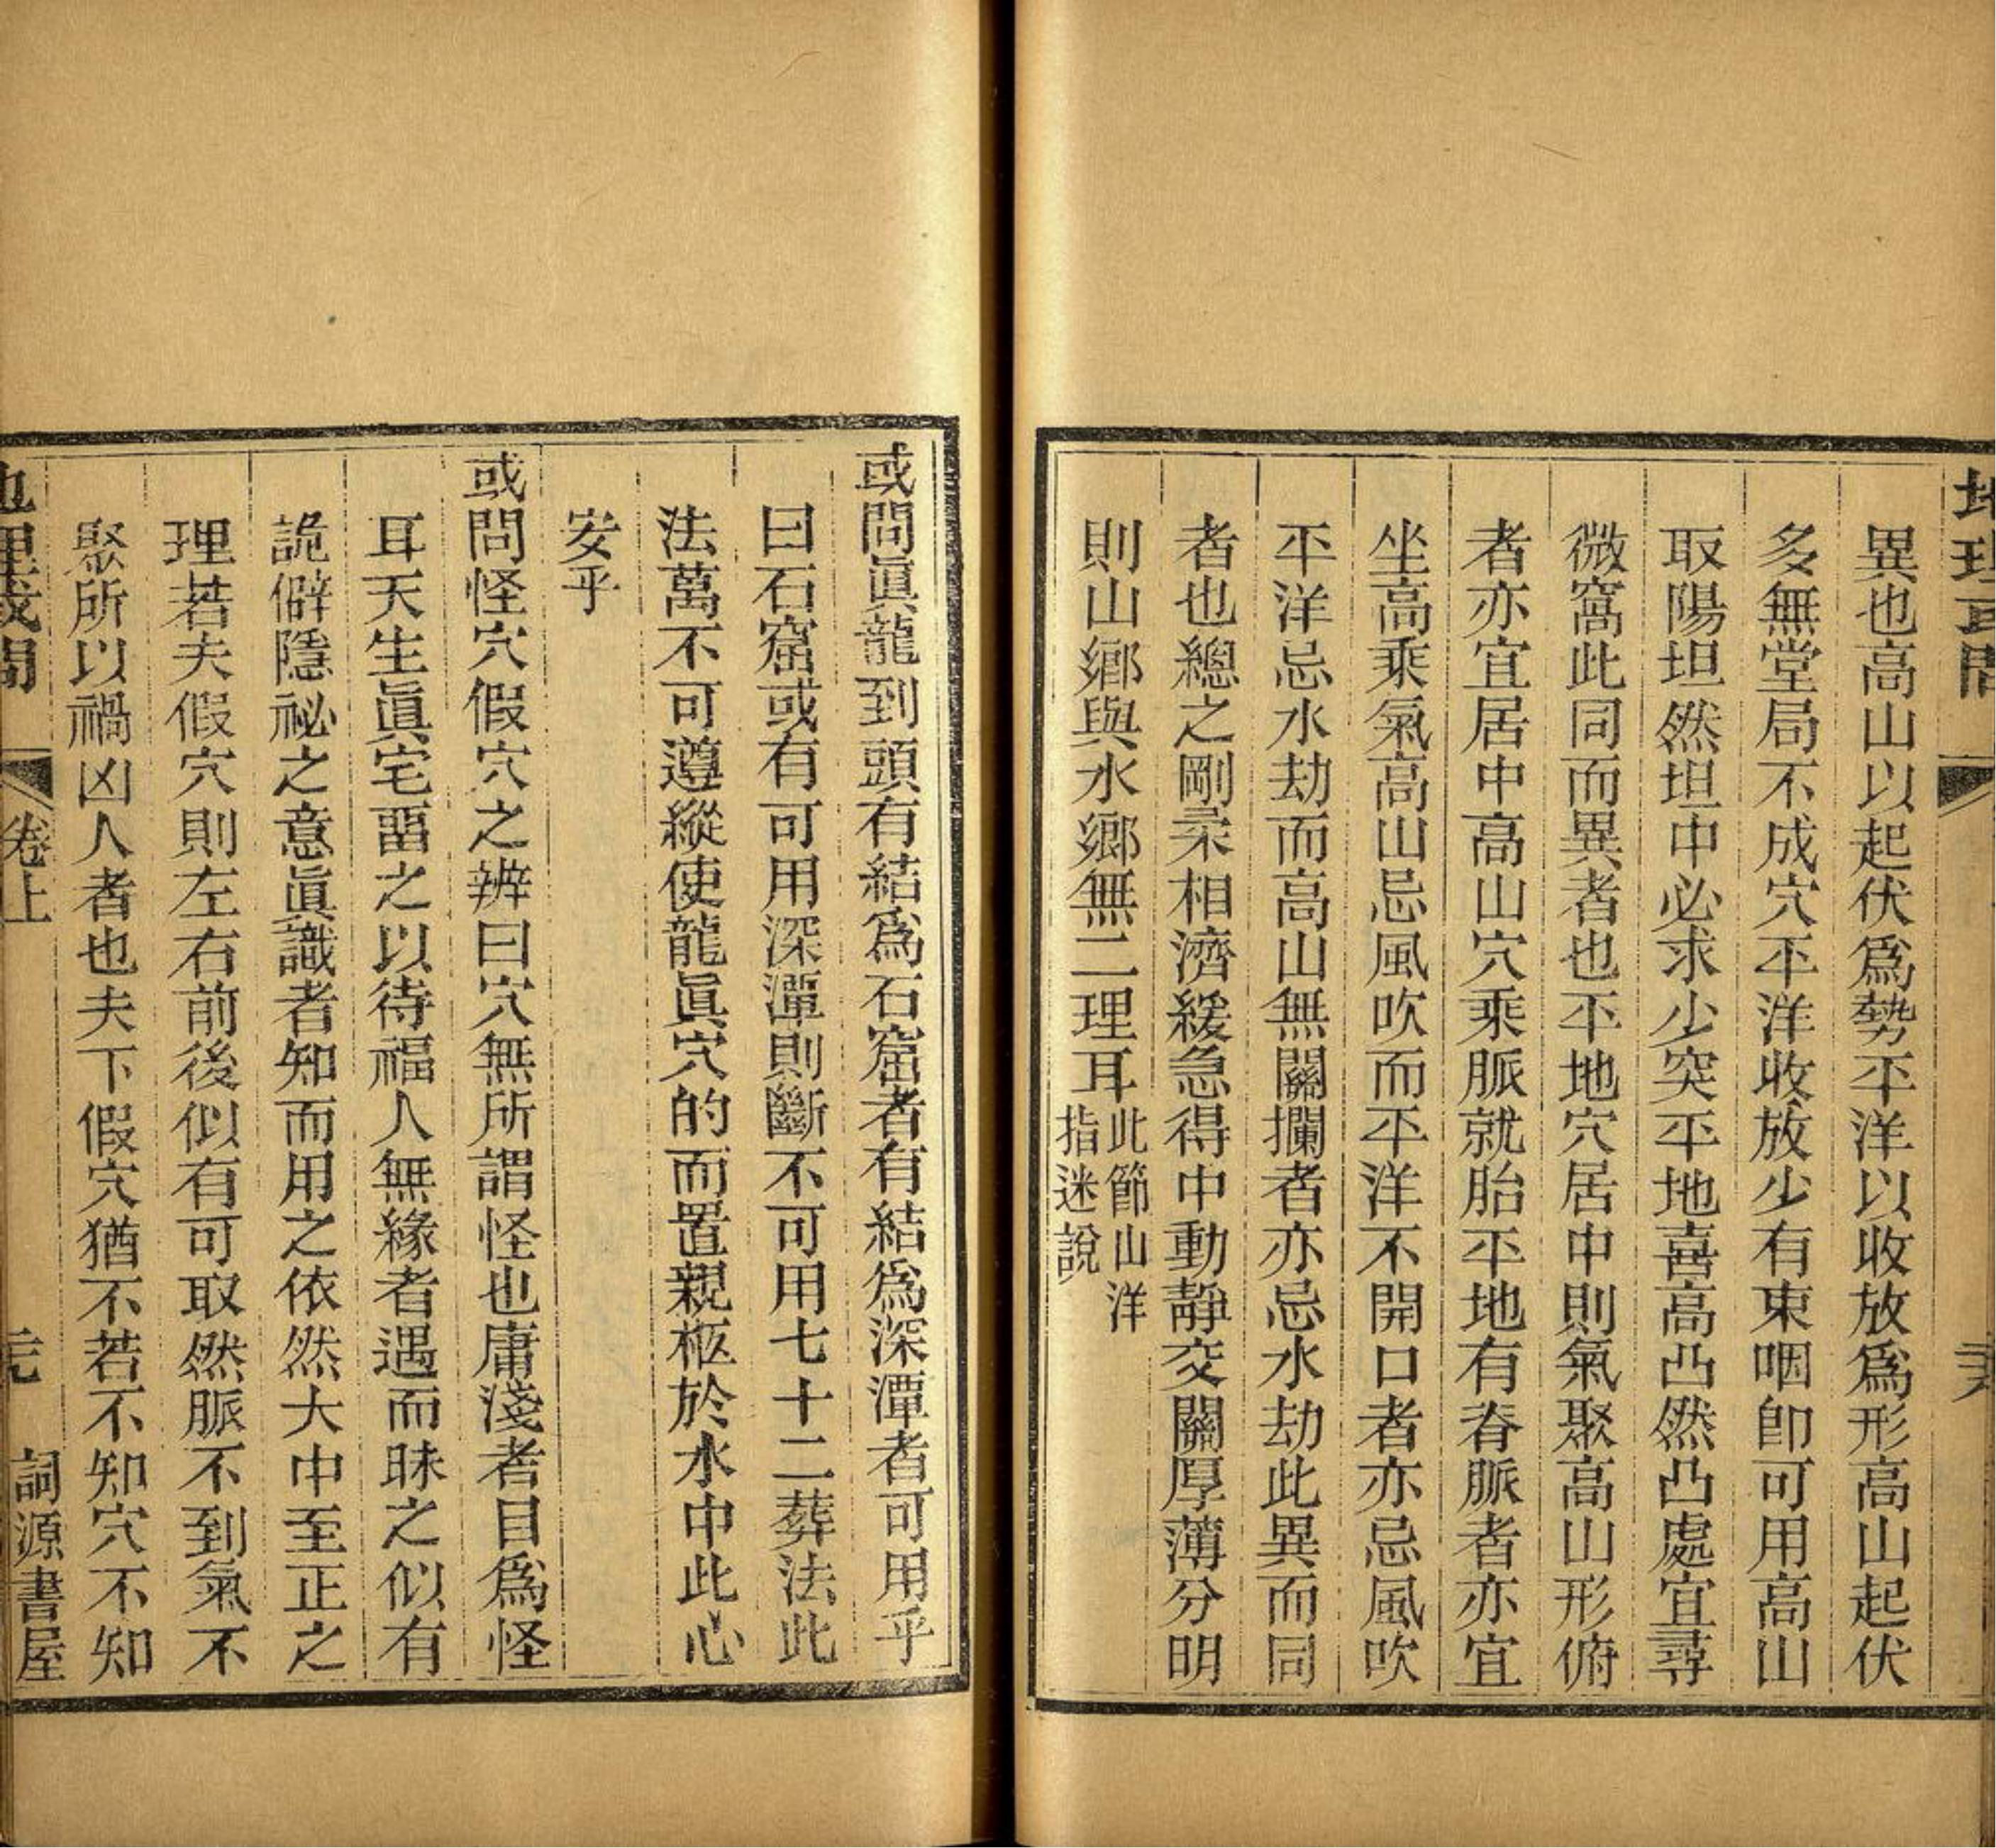 異也高山以起伏爲勢平洋以收放爲形高山起伏
多無堂局不成穴平洋收放少有東咽卽可用高山
取陽坦然坦中必求少突平地喜高凸然凸處宜尋
微窩此同而異者也平地穴居中則氣聚高山形俯
者亦宜居中高山穴乘脈就胎平地有脊脈者亦宜
坐高乘氣高山忌風吹而平洋不開口者亦忌風吹
平洋忌水劫而高山無關攔者亦忌水劫此異而同
者也總之剛柔相濟緩急得中動靜交關厚薄分明
則山鄉與水鄉無二理耳
此節山洋
指迷說
或問眞龍到頭有結爲石窟者有結爲深潭者可用乎
曰石窟或有可用深潭則斷不可用七十二葬法此
法萬不可遵縱使龍眞穴的而置親柩於水中此心
安乎
或問怪穴假穴之辨曰穴無所謂怪也庸淺者目爲怪
耳天生眞宅畱之以待福人無緣者遇而昧之似有
詭僻隱祕之意眞識者知而用之依然大中至正之
理若夫假穴則左右前後似有可取然脈不到氣不
聚所以禍凶人者也夫下假穴猶不若不知穴不知
地理或問 卷上 元 詞源書屋